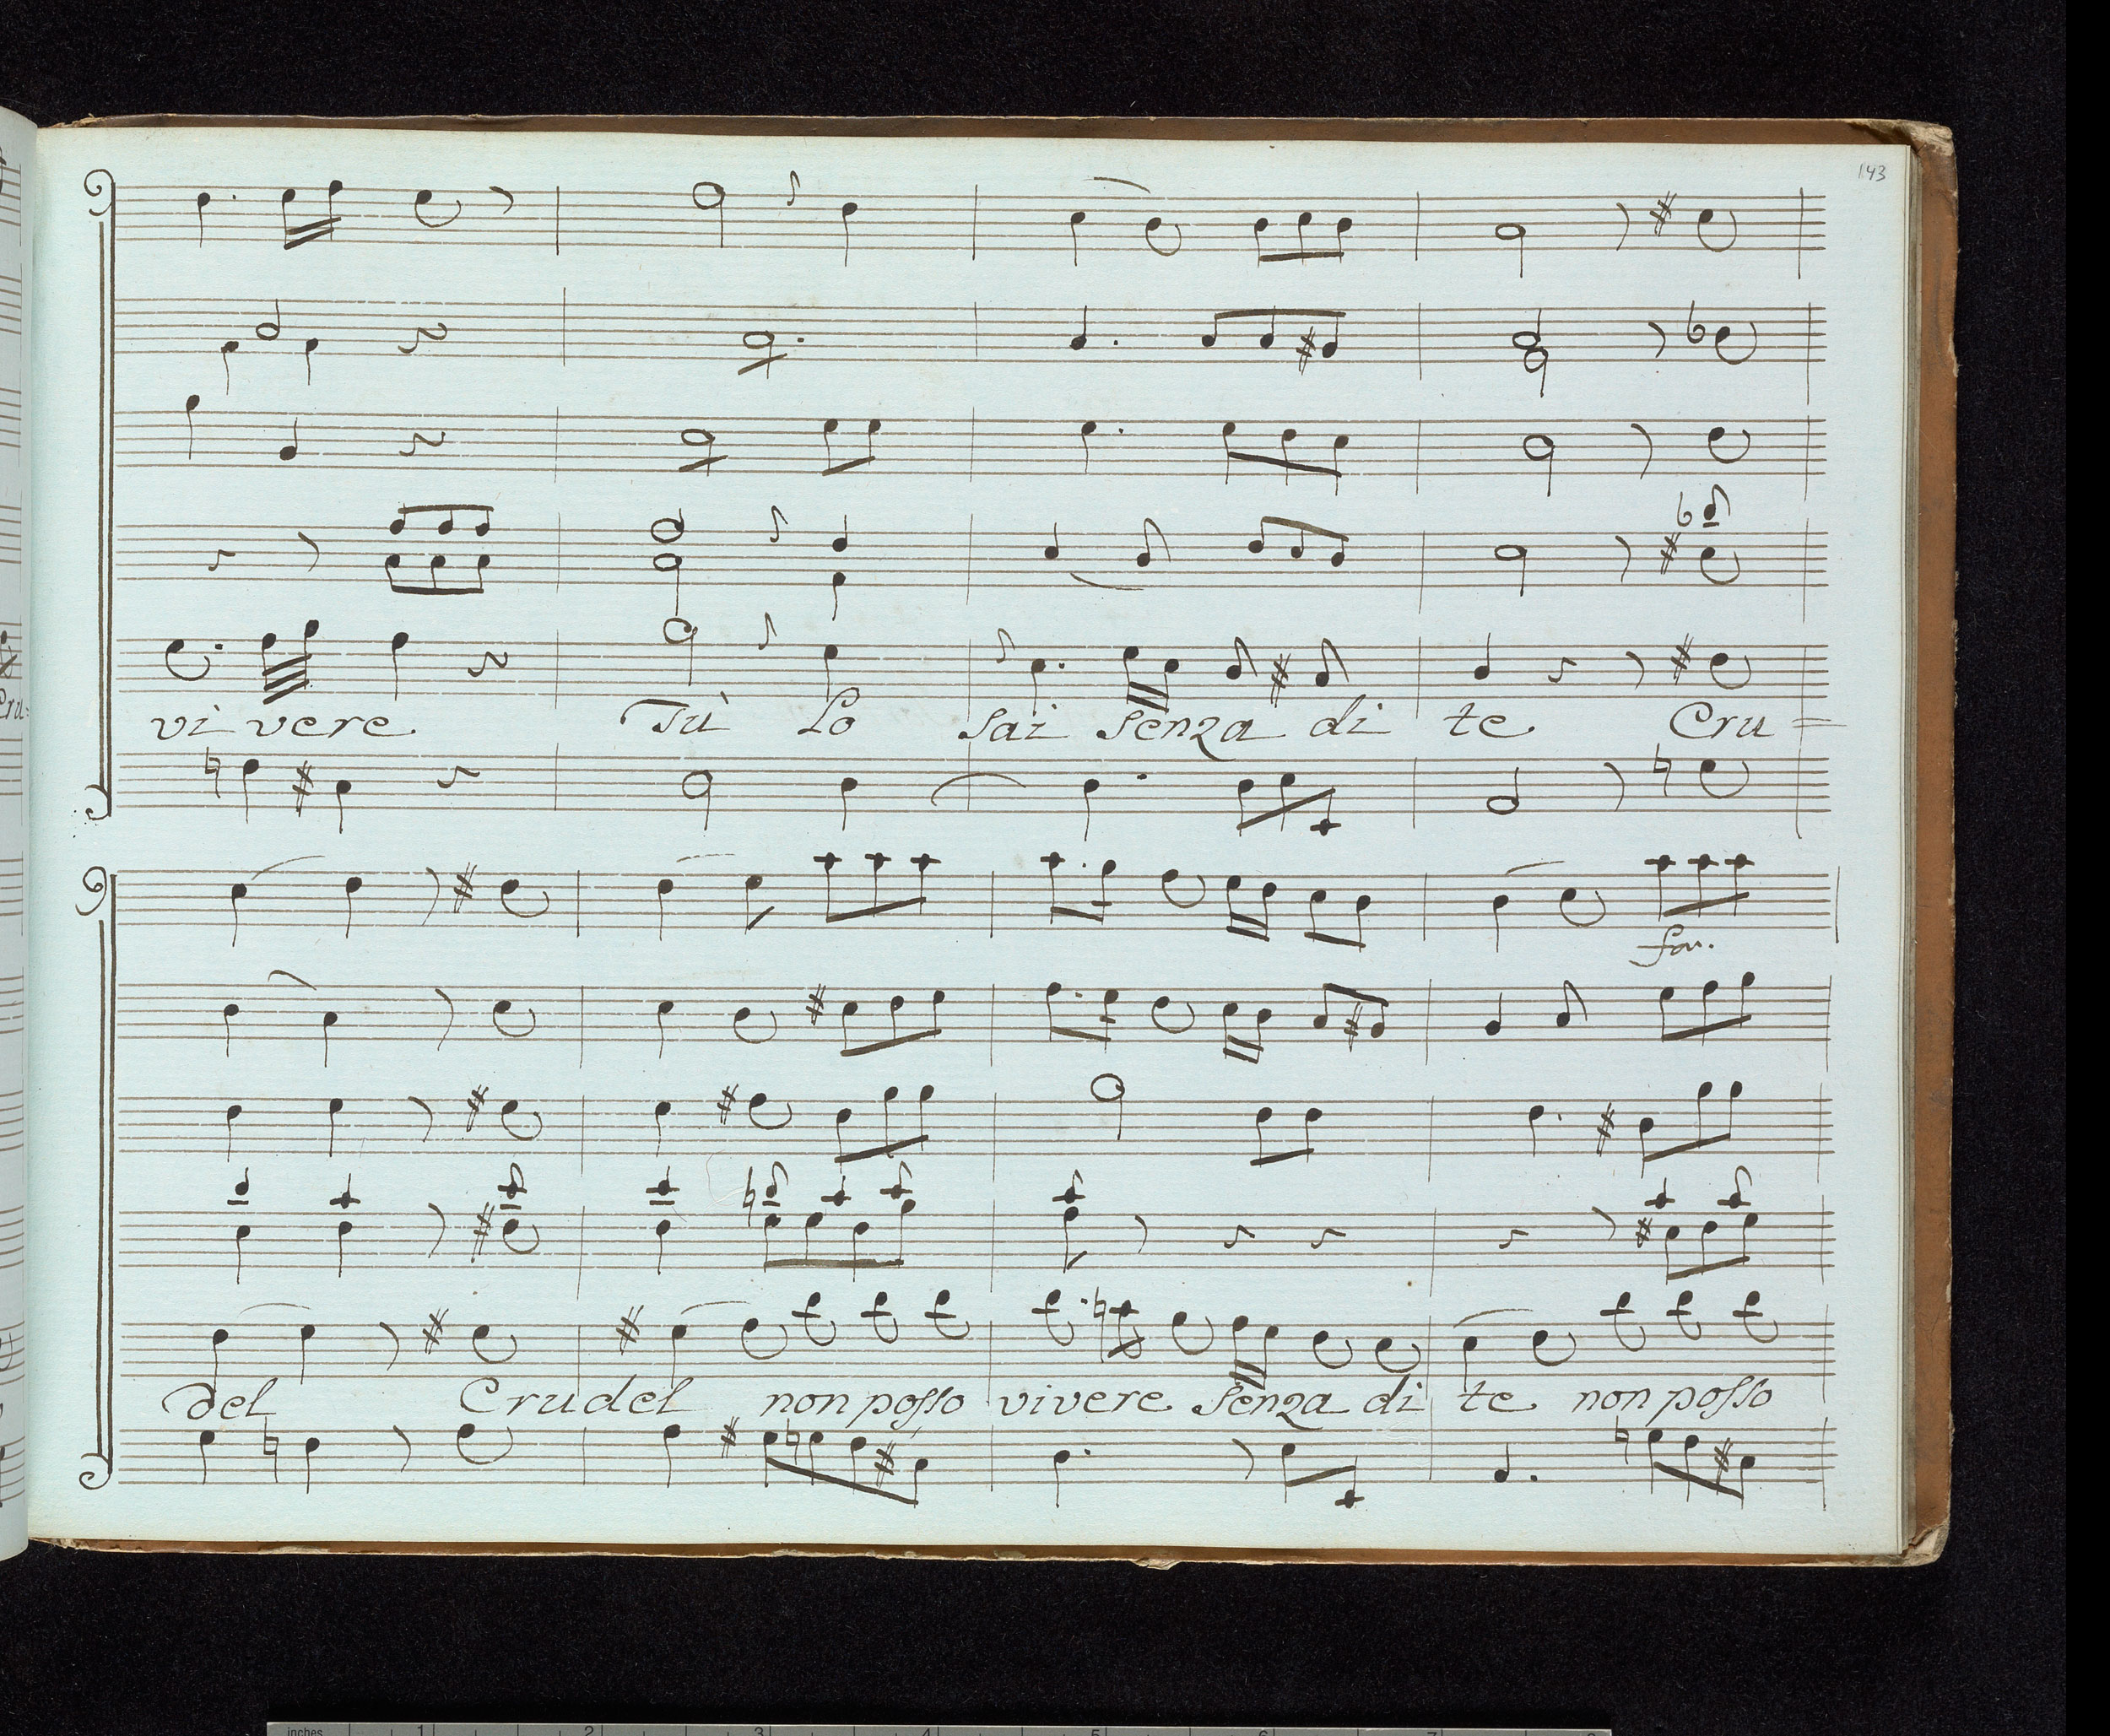 143
Cru=
vi vere Tù Lo sai senza di te Cru=
for.
del Crudel non posso vivere senza di te non posso
inches 1 2 3 4 5 6 7 8